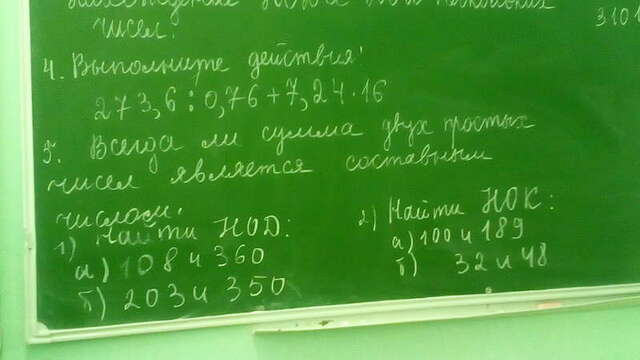 чисел.
3.10.
4. Выполните действия:
273,6 : 0,76 + 7,24 · 16
5. Всегда ли сумма двух простых
чисел является составным
числом.
1) Найти НОД:
а) 108 и 360
б) 203 и 350
2) Найти НОК:
а) 100 и 189
б) 32 и 48